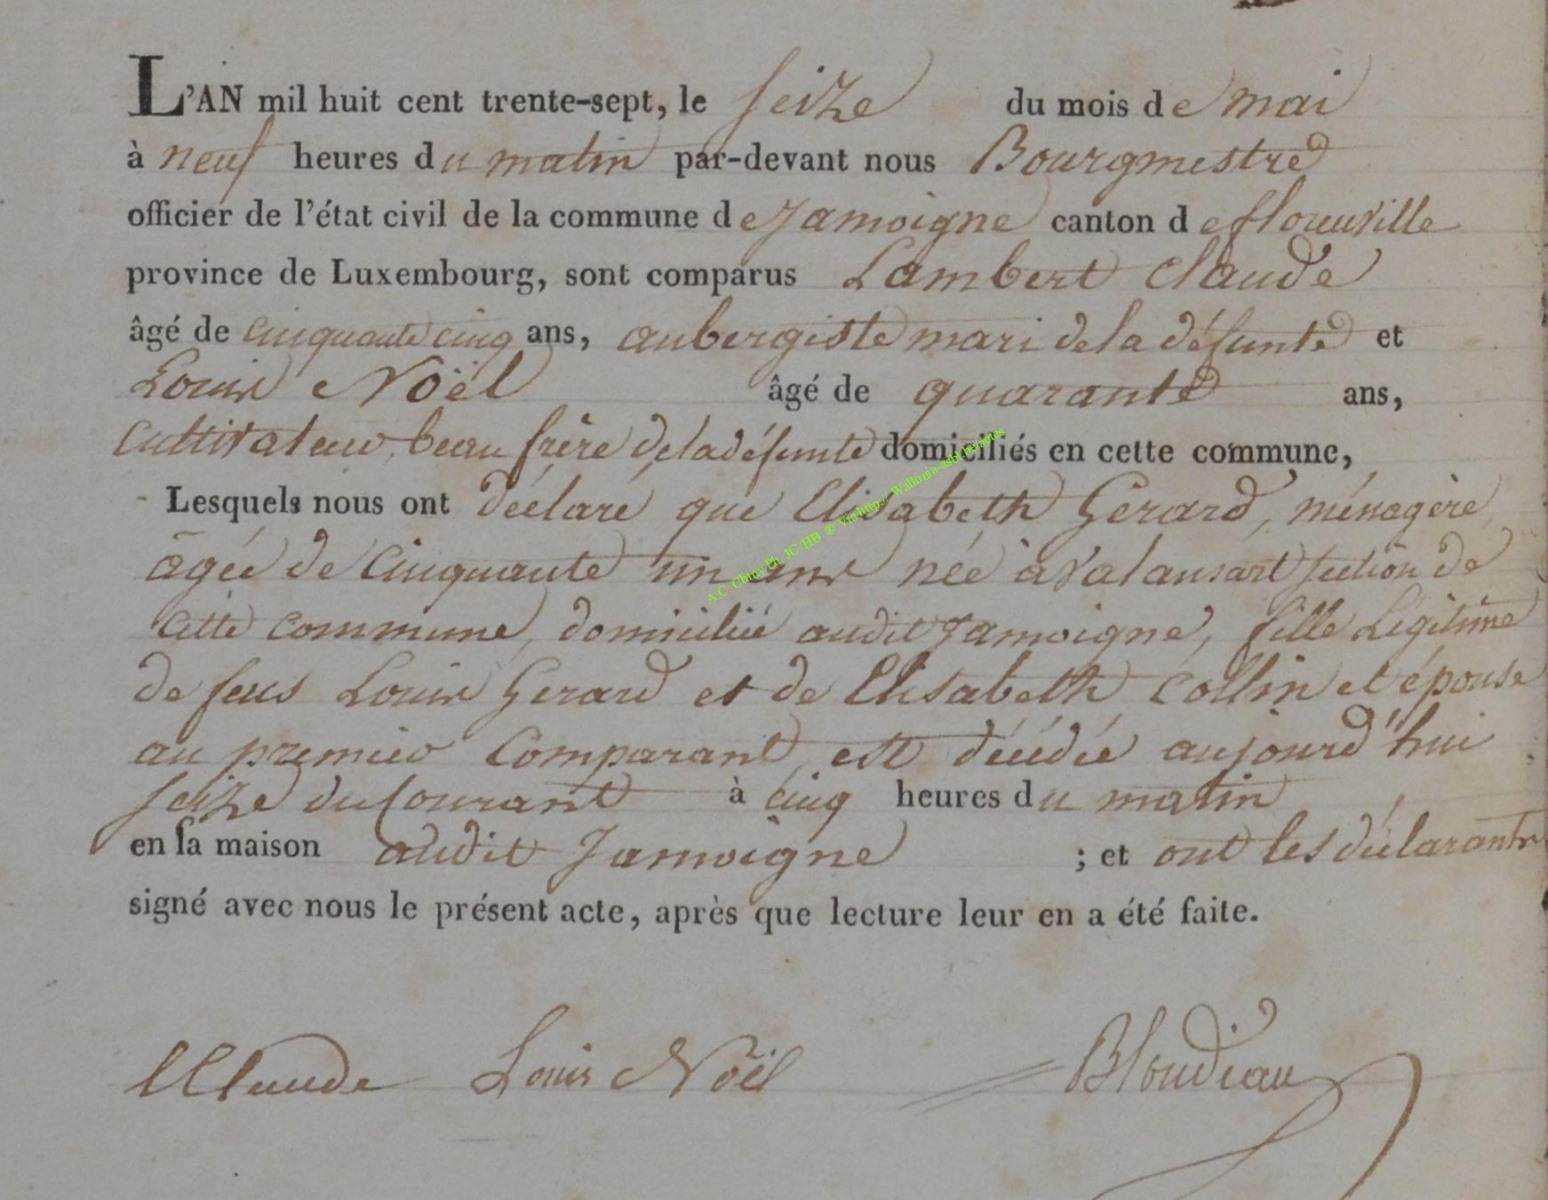 L'AN mil huit cent trente-sept, le seize du mois de mai
à neuf heures du matin par-devant nous Bourgmestre
officier de l'état civil de la commune de Jamoigne canton de florenville
province de Luxembourg, sont comparus Lambert Claude
âgé de cinquante cinq ans, aubergiste mari de la défunte et
Louis Noël âgé de quarante ans,
cultivateur, beau frère de la défunte domiciliés en cette commune,
Lesquels nous ont déclaré que Elisabeth Gerard, ménagère,
âgée de Cinquante un ans née à Valansart section de
cette commune, domiciliée audit Jamoigne, fille Légitime
de feus Louis Gerard et de Elisabeth Collin et épouse
au premier Comparant, est décédée aujourd'hui
seize du Courant à cinq heures du matin
en sa maison audit Jamoigne ; et ont les déclarants
signé avec nous le présent acte, après que lecture leur en a été faite.
LClaude Louis Noël Blondiau